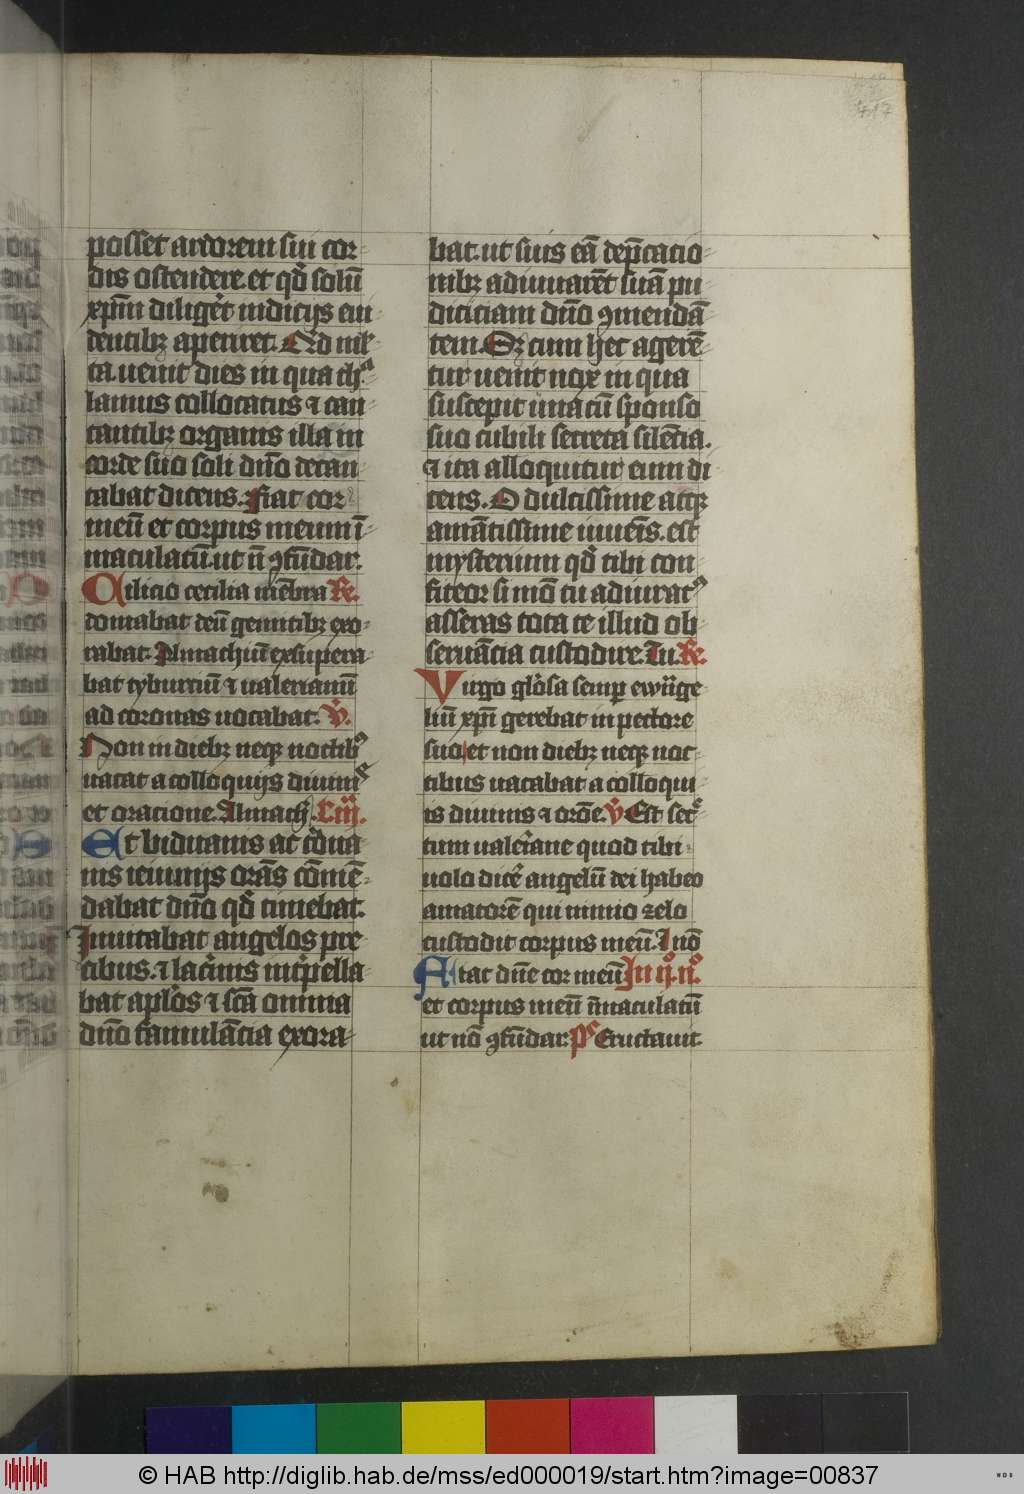 417
posset ardorem sui cor-
dis ostendere. et qd̕ solū
xp̄m diliger̕t indicijs eui-
dentibꝫ aperiret. Quid ml̕-
ta. uenit dies in qua th̕a-
lamus collocatus ⁊ can-
tantibꝫ organis illa in
corde suo soli dn̄o decan-
tabat dicens. Fiat cor
meū et corpus meum ī-
maculatū. ut n̄ ꝯfūdar.
Cilicio cecilia mēbra Re.
domabat deū gemitibꝫ exo-
rabat. Almachiū exsupera-
bat tyburciū ⁊ ualerianū
ad coronas uocabat. V̕.
Non in diebꝫ neqꝫ noctibꝰ
uacat a colloquijs diuinis
et oracione. Almach̕. L'iij.
Et biduanis ac t̕dua-
nis ieiunijs orās cōmē-
dabat dn̄o qd̕ timebat.
Inuitabat angelos pre-
cibus. ⁊ lacrimis int̕pella-
bat apl̕os ⁊ sc̄a omnia
dn̄o famulācia exora-
bat. ut suis eā dep̄cacio-
nibꝫ adiuuarēt suā pu-
diciciam dn̄o ꝯmendā-
tem. Sꝫ cum hec agerē-
tur uenit nox in qua
suscepit una cū sponso
suo cubili secreta silēcia.
⁊ ita alloquitur eum di-
cens. O dulcissime atqꝫ
amātissime iuueīs. est
mysterium qd̕ tibi con-
fiteor si mō tu adiuratꝰ
asseras tota te illud ob-
seruācia custodire. Tu. Re.
Virgo gl̕osa semp̲ ewāge-
liū xp̄i gerebat in pectore
suo et non diebꝫ neqꝫ noc-
tibus uacabat a colloqui-
is diuinis ⁊ orōe. V̕ Est secre-
tum ualer̕ane quod tibi
uolo dicer̕ angelū dei habeo
amatorē qui nimio zelo
custodit corpus meū. In nō
Fiat dn̄e cor meū In ij. n̊.
et corpus meū īmaculatū
ut nō ꝯfūdar. ps̕ Eructauit.
© HAB http://diglib.hab.de/mss/ed000019/start.htm?image=00837